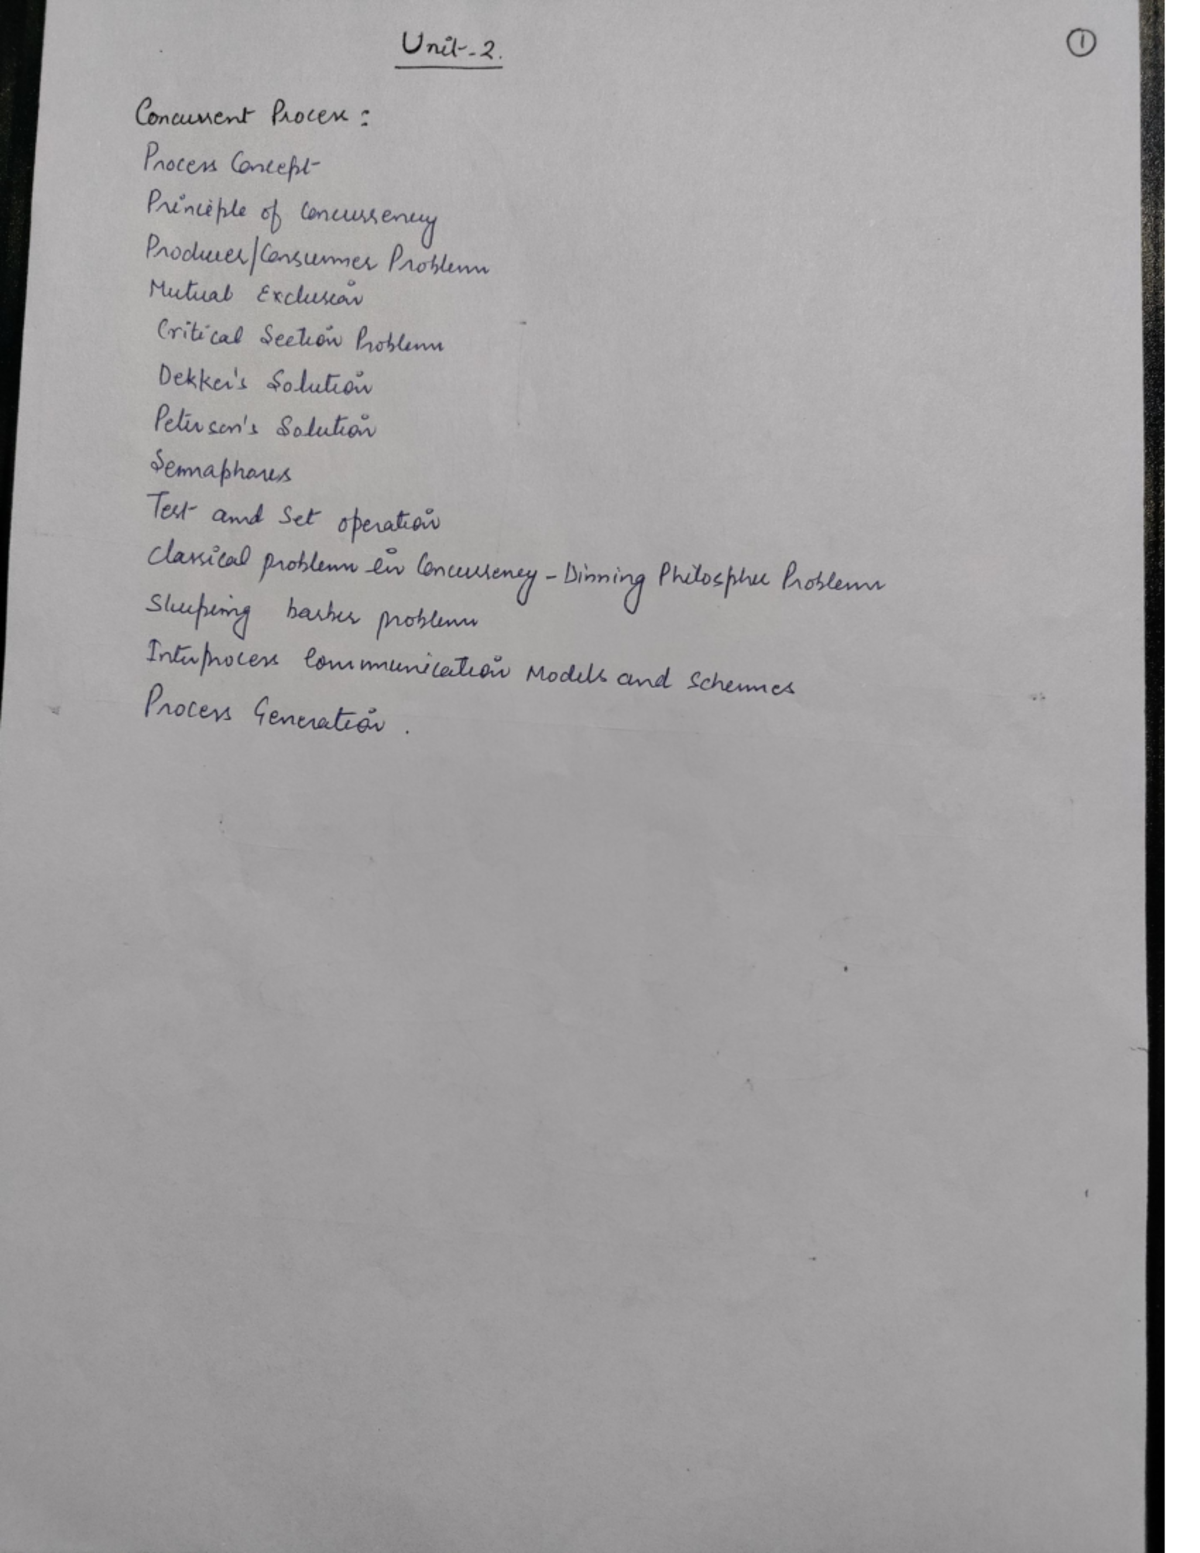 Unit-2.
①
Concurrent Process :
Process Concept
Principle of Concurrency
Producer/Consumer Problem
Mutual Exclusion
Critical Section Problem
Dekker's Solution
Peterson's Solution
Semaphores
Test and Set operation
Classical problem in Concurrency - Dinning Philospher Problem
Sleeping barber problem
Interprocess Communication Models and Schemes
Process Generation .